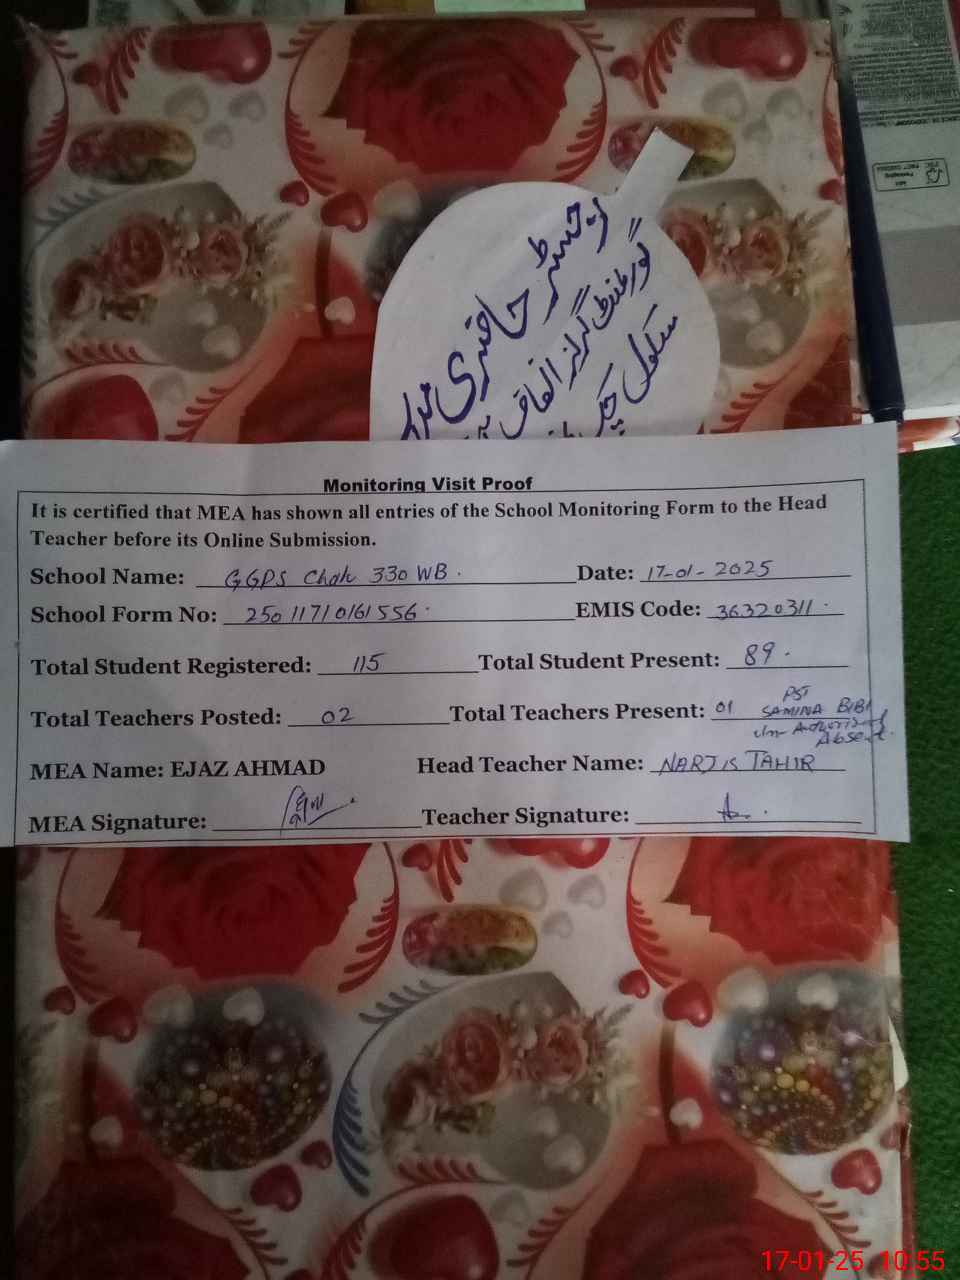 رجسٹر حاضری
گورنمنٹ گرلز الفاق
سکول چک
Monitoring Visit Proof
It is certified that MEA has shown all entries of the School Monitoring Form to the Head
Teacher before its Online Submission.
School Name: GGPS Chak 330 WB. Date: 17-01-2025
School Form No: 250117/0161556. EMIS Code: 36320311.
Total Student Registered: 115 Total Student Present: 89.
Total Teachers Posted: 02 Total Teachers Present: 01 PST
SAMINA BIBI
Un-Authorized
Absent.
MEA Name: EJAZ AHMAD Head Teacher Name: NARJIS TAHIR
MEA Signature: Teacher Signature:
17-01-25 10:55